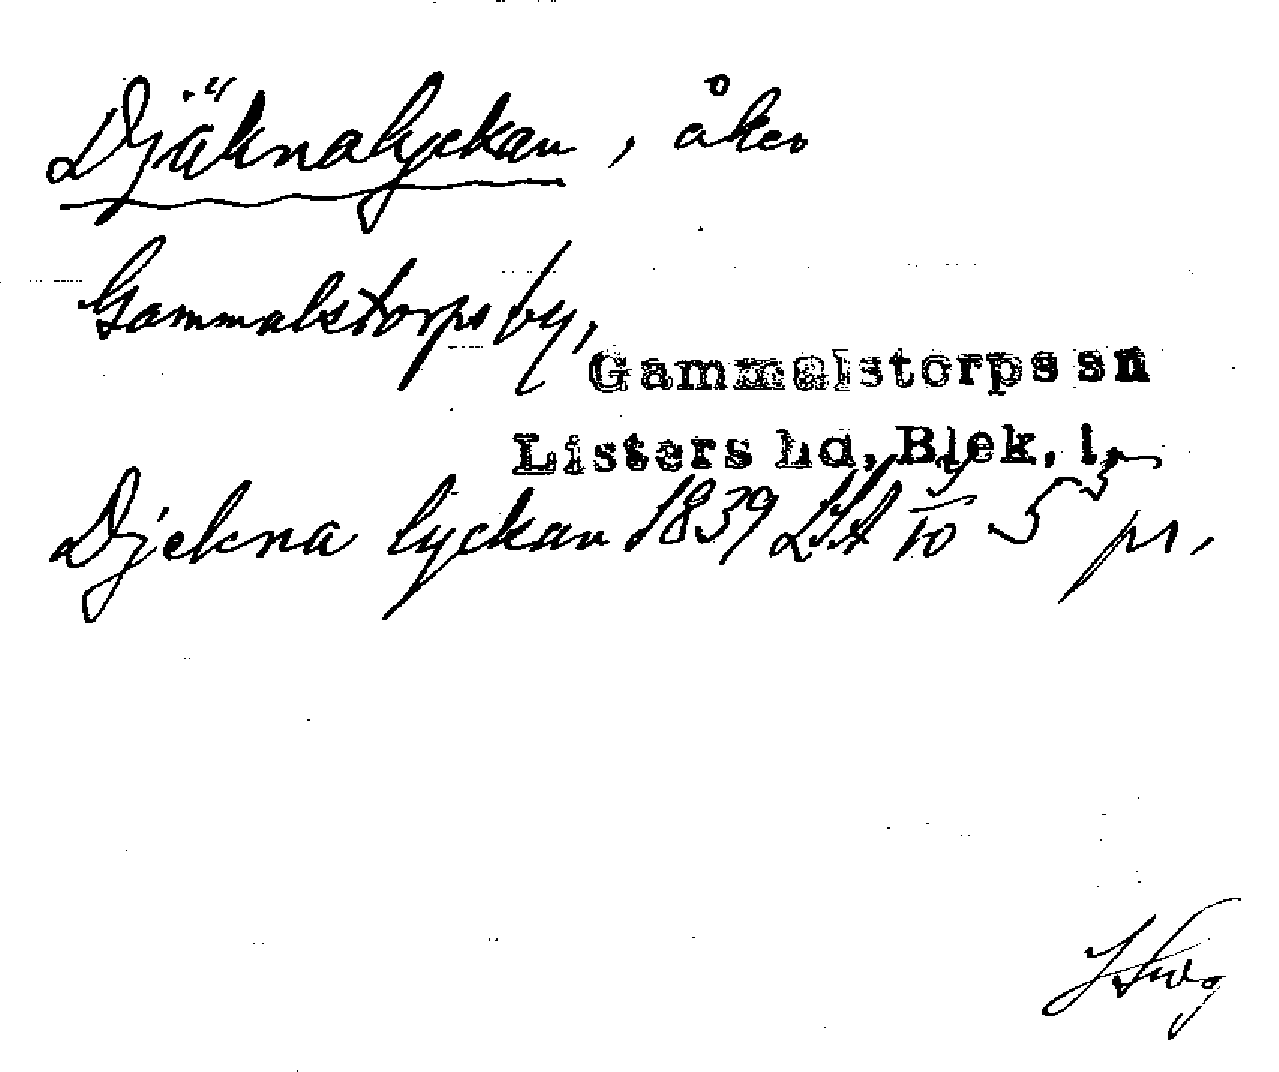 Djäknalyckan, åker
Gammalstorps by,
Gammalstorps sn
Listers hd, Blek. l.
Djekna lyckan 1839 LSA 10 5 pr.